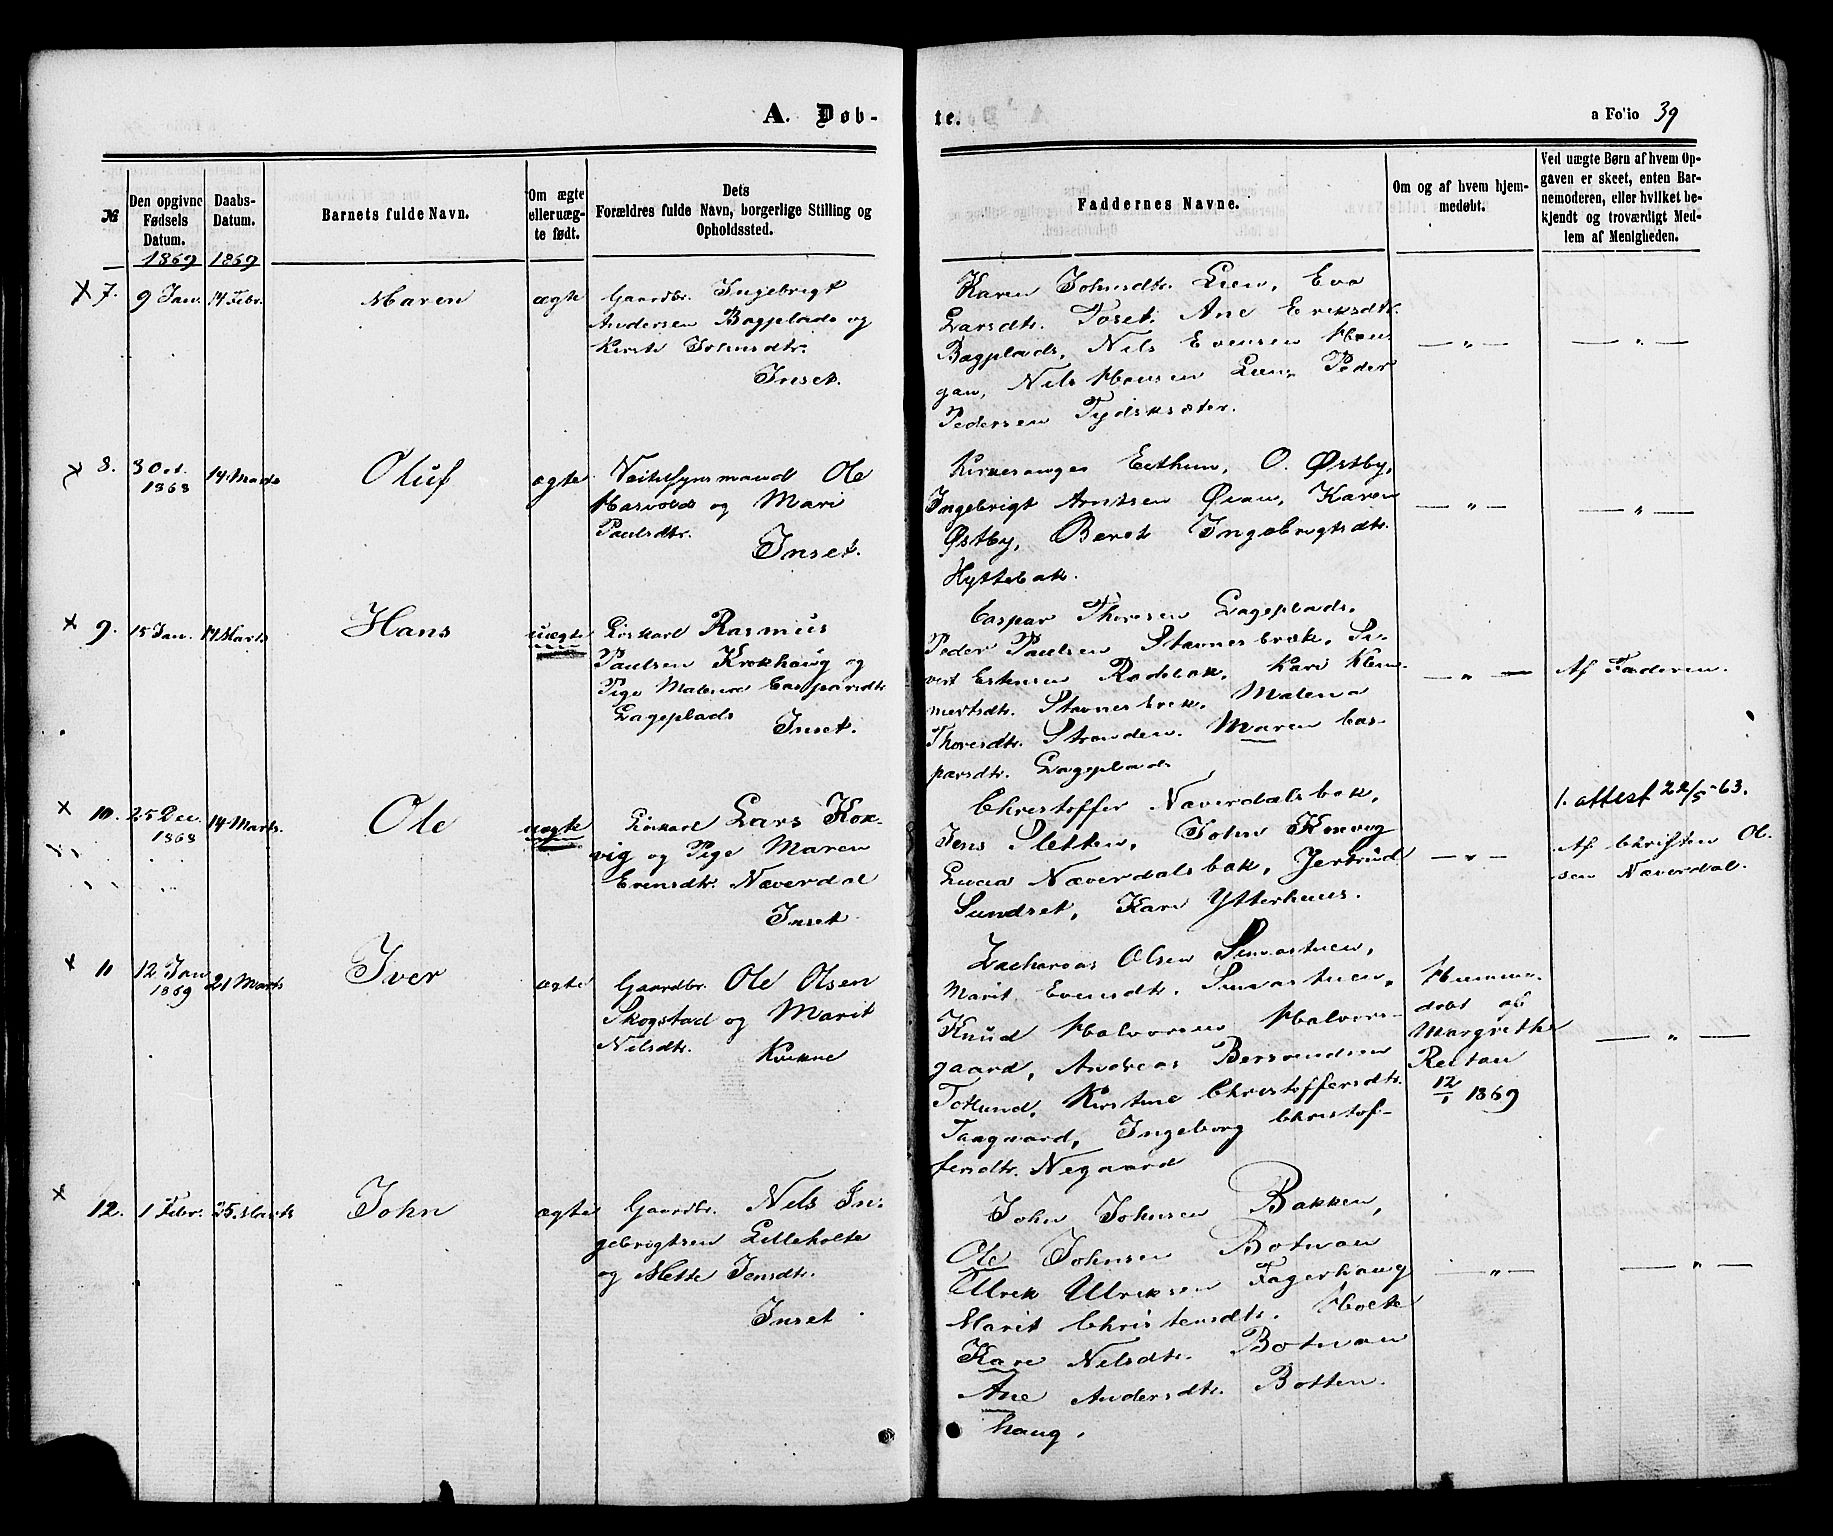 A. Døb-
te.
a Folio 39
№
Den opgivne
Fødsels
Datum.
1869
Daabs-
Datum.
1869
Barnets fulde Navn.
Om ægte
eller uæg-
te født.
Dets
Forældres fulde Navn, borgerlige Stilling og
Opholdssted.
Faddernes Navne.
Om og af hvem hjem-
medøbt.
Ved uægte Børn af hvem Op-
gaven er skeet, enten Bar-
nemoderen, eller hvilket be-
kjendt og troværdigt Med-
lem af Menigheden.
7. 9 Jan. 14 Febr. Maren ægte
Gaardbr. Ingebrigt
Andersen Bagplads og
Kirsti Johnsdtr.
Inset.
Karen Johnsdtr. Lien, Eva
Larsdtr. Toset. Ane Eriksdtr.
Bagplads, Nils Evensen Hau-
gan, Nils Hansen Lien, Peder
Pedersen Tydsksæter.
— „ —
— „ —
8. 3 Oct. 14 Marts Oluf ægte
1868
Ole
Hasvold og Mari
Paulsdtr.
Inset.
Kirkesanger O. Østby,
Ingebrigt Arntsen Øian, Karen
Østby, Beret Ingebrigtsdtr.
Hyttebak.
— „ —
— „ —
9. 15 Jan. 14 Marts Hans uægte
Løskarl Rasmus
Paulsen Krokhaug og
Pige Malena Caspersdtr
Lageplads
Inset.
Caspar Thoresen Lageplads,
Peder Paulsen Stavnesbræk, Si-
vert Estensen Rødbak, Kari Klem-
metsdtr. Stavnesbræk, Malena
Thoresdtr. Stranden. Maren Cas-
parsdtr. Lageplads
— „ —
Af Faderen.
10. 25 Dec. 14 Marts. Ole uægte
1868
Løskarl Lars Kok-
vig og Pige Maren
Evensdtr. Næverdal
Inset.
Christoffer Næverdalsbak,
Jens Sletten, John Kokvig
Lucia Næverdalsbak, Jertrud
Sundset, Kari Ytterhuus.
— „ —
1. attest 22/5-63.
Af Christen Ol-
sen Næverdal.
11 12 Jan 21 Marts Iver ægte
1869
Gaardbr. Ole Olsen
Skogstad og Marit
Nilsdtr.
Kvikne
Zacharias Olsen
Marit Evensdtr.
Knud Halvorsen Halvors-
gaard, Andreas Bersvendsen
Toklund, Kirstine Christoffersdtr.
Taagaard, Ingeborg Christof-
fersdtr. Negaard
Hjemme-
døbt af
Margrethe
Reitan
12/1 1869
— „ —
12. 1 Febr. 25. Marts John ægte
Gaardbr. Nils In-
gebrigtsen Lilleholte
og Mette Jensdtr.
Inset.
John Johnsen Bakken,
Ole Johnsen Botnan
Ulrik Ulriksen Fagerhaug
Marit Christensdtr. Holte
Kari Nilsdtr. Botnan
Ane Andersdtr. Botten-
haug.
— „ —
— „ —